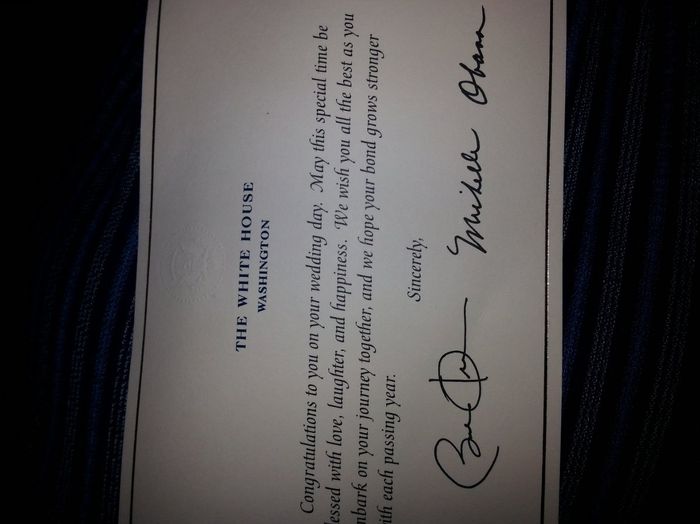 THE WHITE HOUSE
WASHINGTON
Congratulations to you on your wedding day. May this special time be
lessed with love, laughter, and happiness. We wish you all the best as you
mbark on your journey together, and we hope your bond grows stronger
ith each passing year.
Sincerely,
Michelle Obama